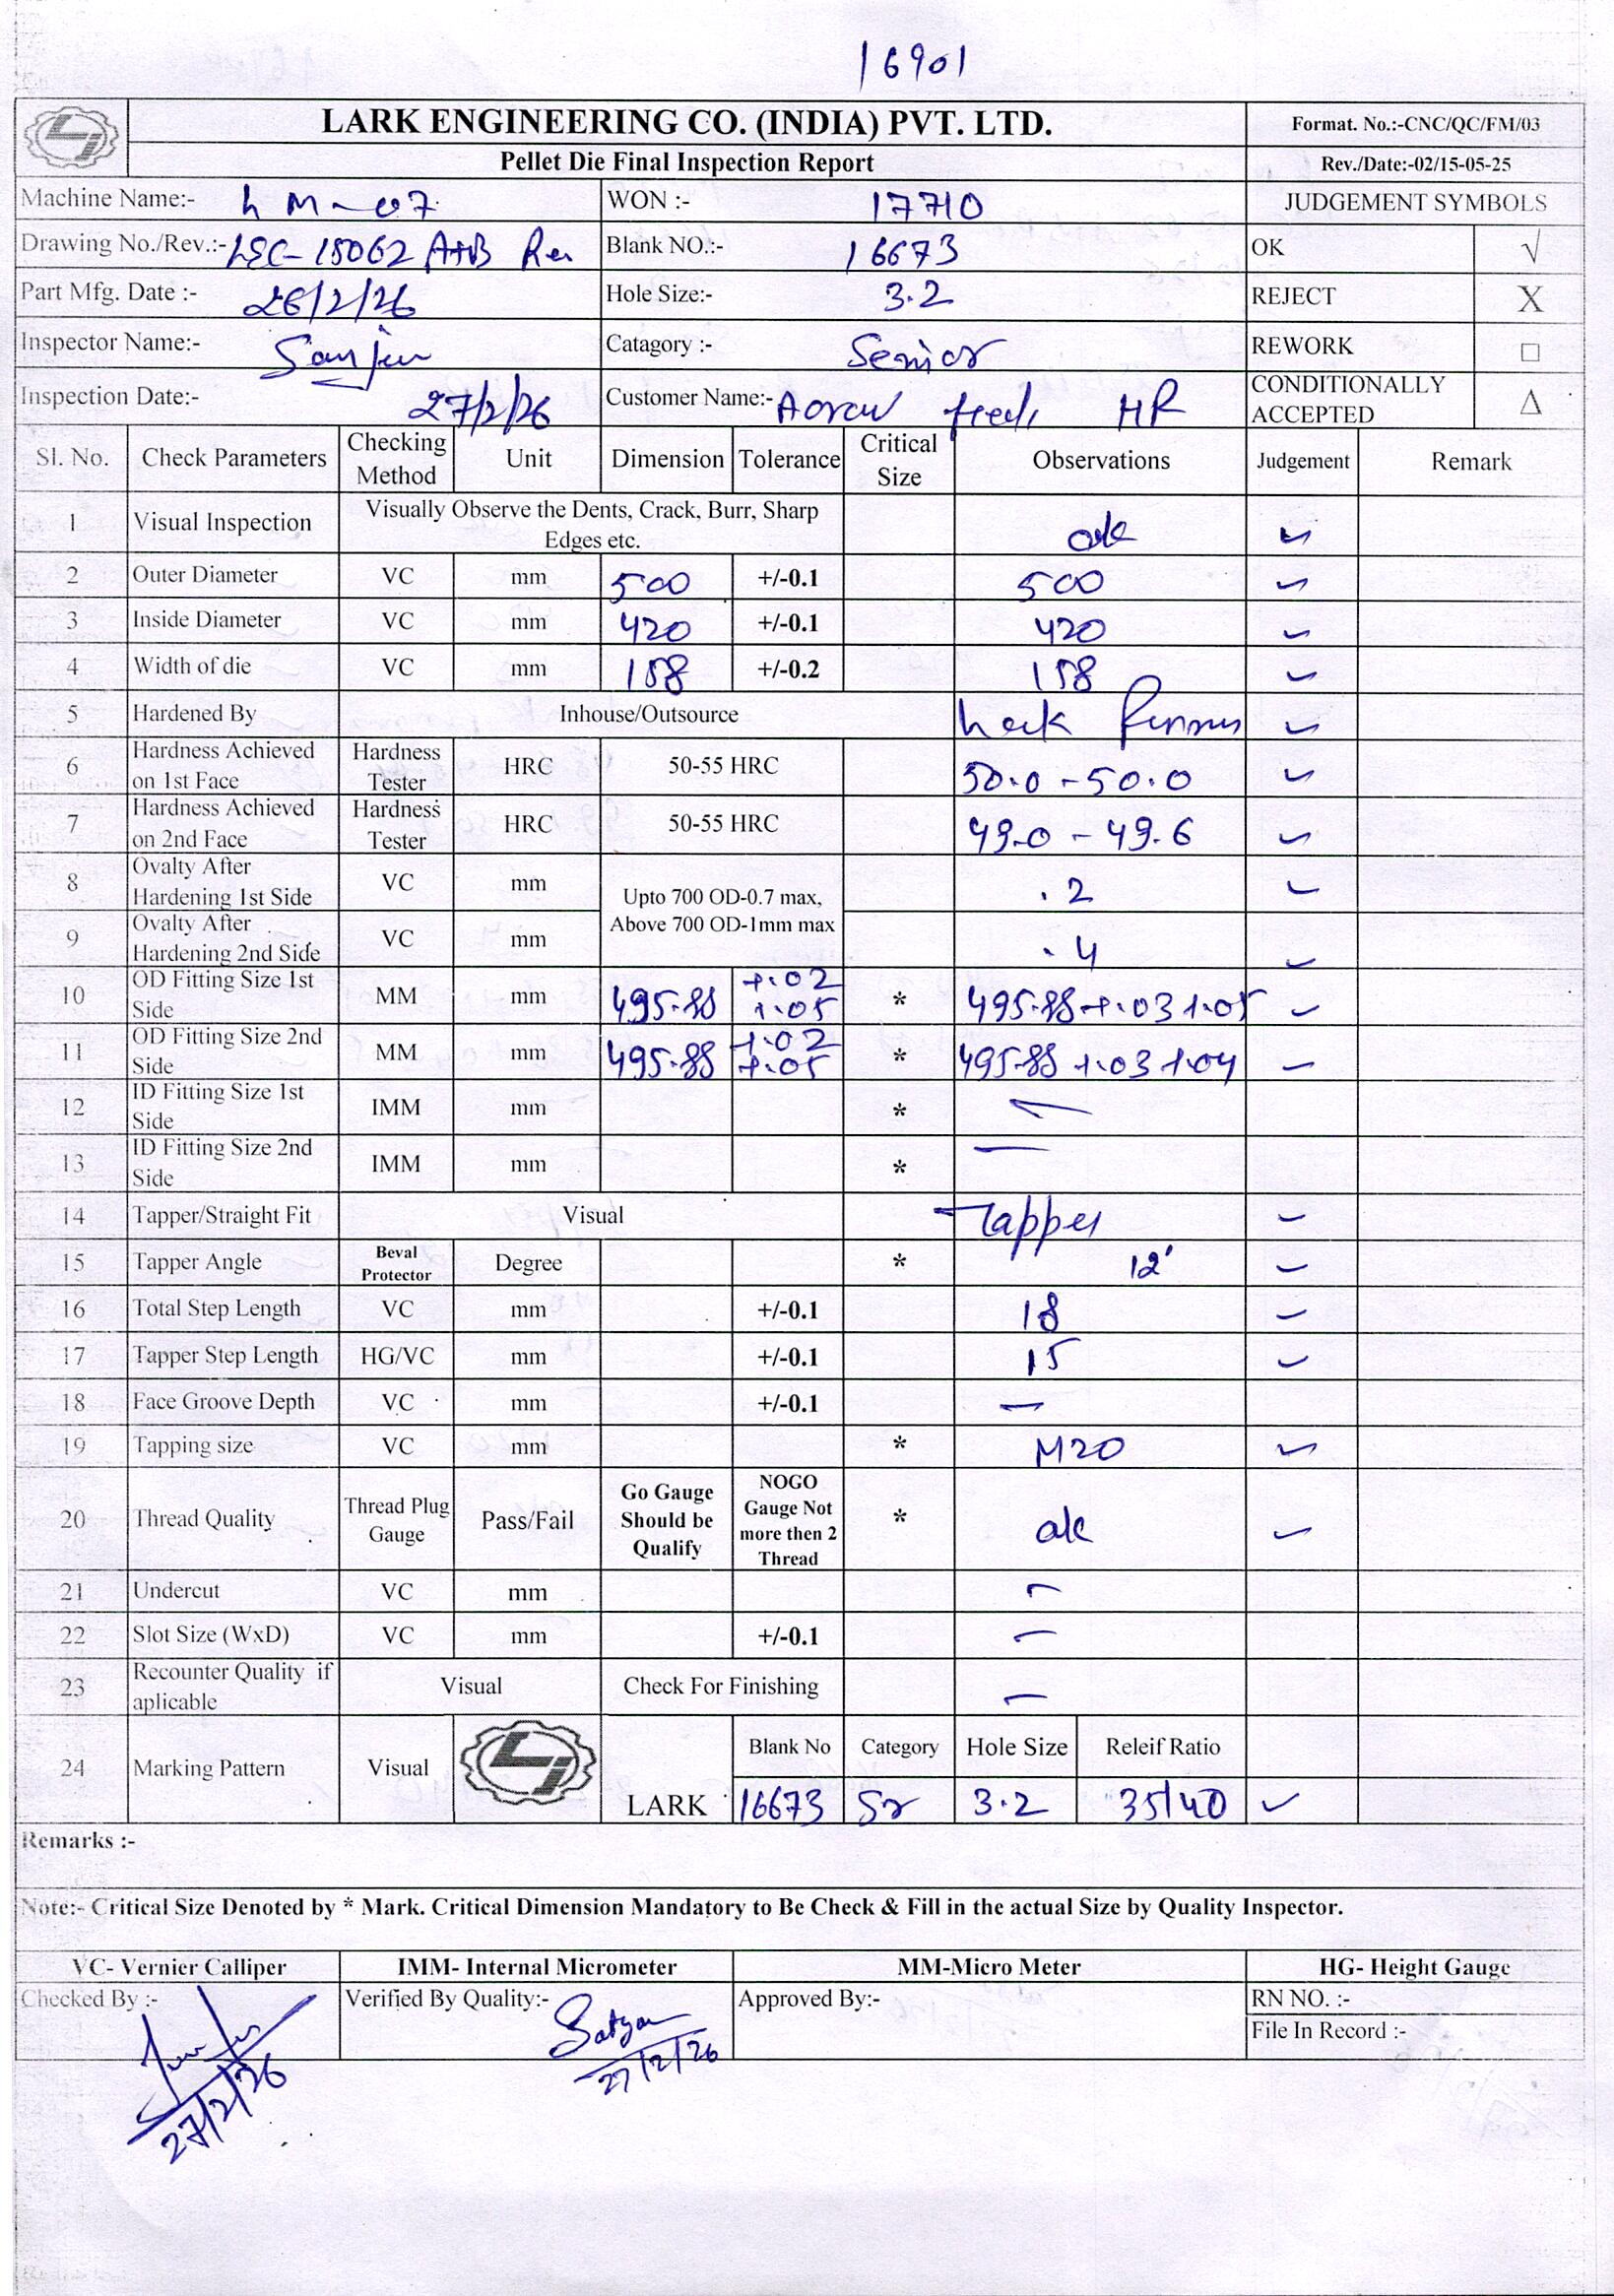 16901
LARK ENGINEERING CO. (INDIA) PVT. LTD.
Format. No.:-CNC/QC/FM/03
Pellet Die Final Inspection Report
Rev./Date:-02/15-05-25
Machine Name:- LM-07 WON :- 17710 JUDGEMENT SYMBOLS
Drawing No./Rev.:- LEC-15062 A+B Blank NO.:- 16673 OK √
Part Mfg. Date :- 26/2/26 Hole Size:- 3.2 REJECT X
Inspector Name:- Sanjeev Catagory :- Senior REWORK □
Inspection Date:- 27/2/26 Customer Name:- feeds HR CONDITIONALLY ACCEPTED Δ
Sl. No. Check Parameters Checking Method Unit Dimension Tolerance Critical Size Observations Judgement Remark
1 Visual Inspection Visually Observe the Dents, Crack, Burr, Sharp Edges etc. ok ✓
2 Outer Diameter VC mm 500 +/-0.1 500 ✓
3 Inside Diameter VC mm 420 +/-0.1 420 ✓
4 Width of die VC mm 158 +/-0.2 158 ✓
5 Hardened By Inhouse/Outsource ✓
6 Hardness Achieved on 1st Face Hardness Tester HRC 50-55 HRC 50.0 - 50.0 ✓
7 Hardness Achieved on 2nd Face Hardness Tester HRC 50-55 HRC 49.0 - 49.6 ✓
8 Ovalty After Hardening 1st Side VC mm Upto 700 OD-0.7 max, Above 700 OD-1mm max .2 ✓
9 Ovalty After Hardening 2nd Side VC mm .4 ✓
10 OD Fitting Size 1st Side MM mm 495.88 +.02 +.05 * 495.88 +.03 +.05 ✓
11 OD Fitting Size 2nd Side MM mm 495.88 +.02 +.05 * 495.88 +.03 +.04 ✓
12 ID Fitting Size 1st Side IMM mm * —
13 ID Fitting Size 2nd Side IMM mm * —
14 Tapper/Straight Fit Visual Tapper ✓
15 Tapper Angle Beval Protector Degree * 12' ✓
16 Total Step Length VC mm +/-0.1 18 ✓
17 Tapper Step Length HG/VC mm +/-0.1 15 ✓
18 Face Groove Depth VC mm +/-0.1 —
19 Tapping size VC mm * M20 ✓
20 Thread Quality Thread Plug Gauge Pass/Fail Go Gauge Should be Qualify NOGO Gauge Not more then 2 Thread * ok ✓
21 Undercut VC mm —
22 Slot Size (WxD) VC mm +/-0.1 —
23 Recounter Quality if aplicable Visual Check For Finishing —
24 Marking Pattern Visual LARK Blank No Category Hole Size Releif Ratio
16673 Sr 3.2 35/40 ✓
Remarks :-
Note:- Critical Size Denoted by * Mark. Critical Dimension Mandatory to Be Check & Fill in the actual Size by Quality Inspector.
VC- Vernier Calliper IMM- Internal Micrometer MM-Micro Meter HG- Height Gauge
Checked By :- Verified By Quality:- Satyam Approved By:- RN NO. :-
File In Record :-
27/2/26 27/2/26